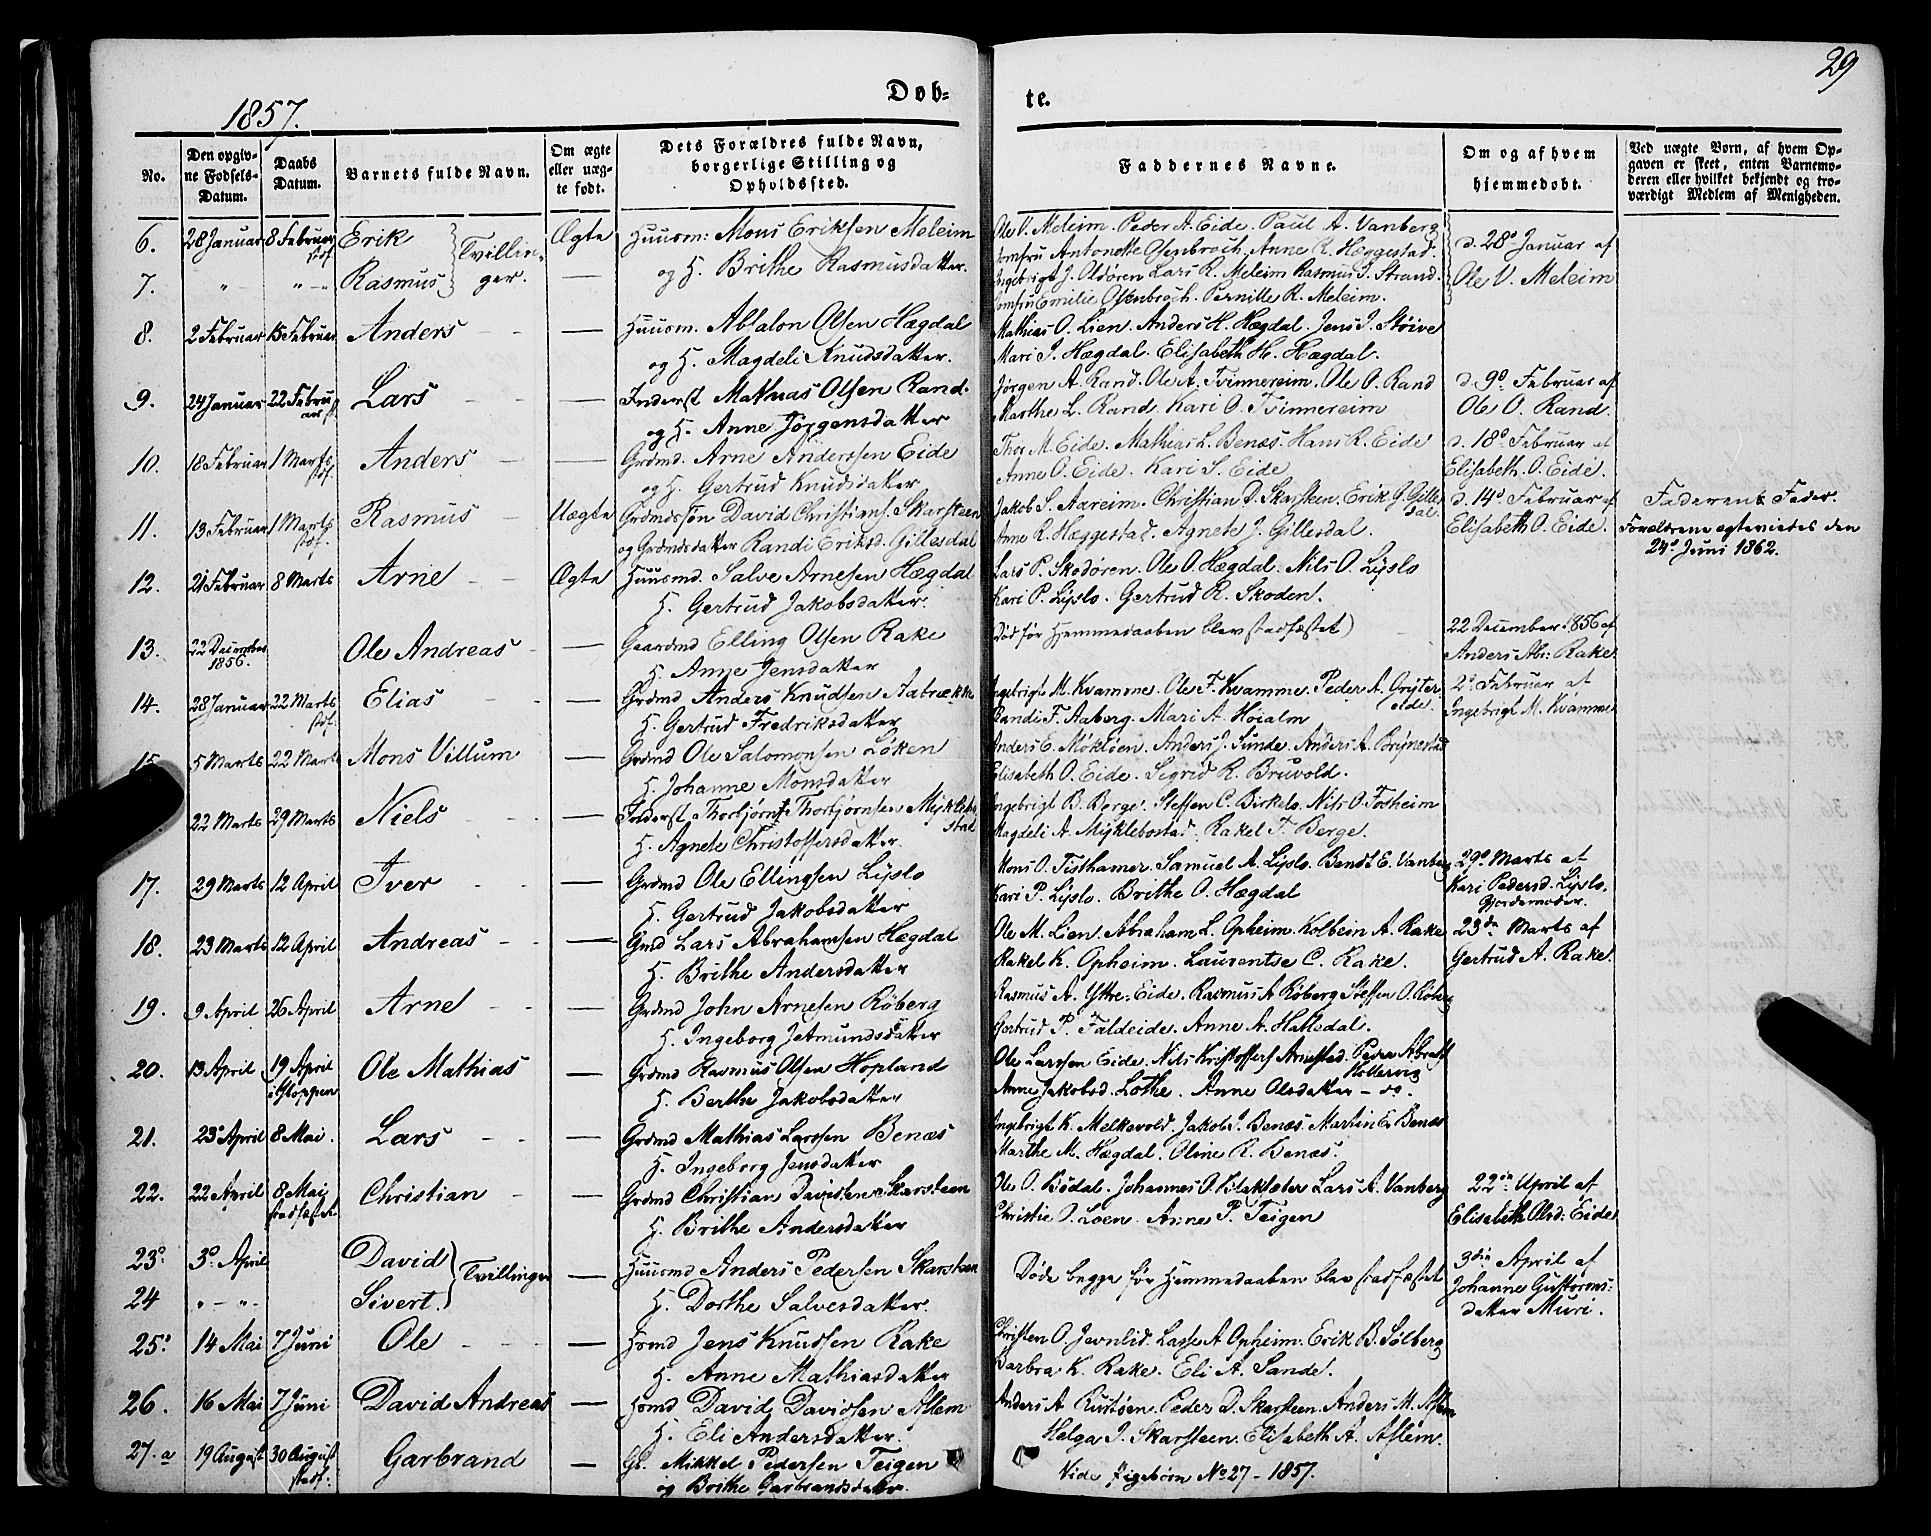 29
1857.
Døb-
te.
No.
Den opgiv-
ne Fødsels-
Datum.
Daabs
Datum.
Barnets fulde Navn.
Om ægte
eller uæg-
te født.
Dets Forældres fulde Navn,
borgerlige Stilling og
Opholdssted.
Faddernes Navne.
Om og af hvem
hjemmedøbt.
Ved uægte Børn, af hvem Op-
gaven er skeet, enten Barnemo-
deren eller hvilket bekjendt og tro-
værdigt Medlem af Menigheden.
6. 28 Januar 8 Februar stdf. Erik Tvillin- Ægte Huusm: Mons Eriksen Meleim
Ole V. Meleim. Peder A. Eide. Paul A. Vanberg d. 28de Januar af
Jomfru Antonette Ofenbroch. Anne R. Hæggestad. Ole V. Meleim
7. " " - " Rasmus ger. — og H. Brithe Rasmusdatter.
Ingebrigt J. Oldøren Lars R. Meleim Rasmus J. Strand.
Jomfru Emilie Ofenbroch. Pernille R. Meleim.
8. 2 Februar 15 Februar Anders — Huusm. Absalon Olsen Hægdal
og H. Magdeli Knudsdatter.
Mathias O. Lien. Anders H. Hægdal. Jens J. Støive
Mari J. Hægdal. Elisabeth H. Hægdal.
9. 24 Januar 22 Febru- ar st. Lars — Inderst Mathias Olsen Rand.
og H. Anne Jørgensdatter
Jørgen A. Rand. Ole A. Tvinnereim. Ole O. Rand d. 9de Februar af
Marthe L. Rand Kari O. Tvinnereim Ole O. Rand.
10. 18 Februar 1 Marts stdf. Anders — Grdmd. Arne Anderssen Eide
og H. Gertrud Knudsdatter
Thor M. Eide. Mathias L. Benæs. Hans R. Eide d. 18de Februar af
Anne O. Eide. Kari S. Eide Elisabeth O. Eide.
11. 13 Februar 1 Marts stdf. Rasmus Uægte Grdmdssøn David Christians. Skarsteen
og Grdmdsdatter Randi Eriksd. Gillesdal
Jakob S. Aareim. Christian D. Skarsteen. Erik J. Gilles- dal. d. 14de Februar af
Anne R. Hæggestad. Agnete J. Gillesdal. Elisabeth O. Eide.
Faderens Fader.
Forældrene ægteviedes den
24de Juni 1862.
12. 21 Februar 8 Marts Arne Ægte Huusmd. Salve Arnesen Hægdal
H. Gertrud Jakobsdatter.
Lars P. Skodøren. Ole O. Hægdal. Nils O. Lyslo
Kari P. Lyslo. Gertrud R. Skoden.
13. 22 December 1856. Ole Andreas — Gaardmd Elling Olsen Rake
H. Anne Jensdatter
Død før Hjemmedaaben blev stadfæstet) 22 December 1856 af
Anders Abr: Rake.
14. 28 Januar 22 Marts stdf. Elias — Grdmd Anders Knudsen Aabrække
H. Gertrud Fredriksdatter
Ingebrigt M. Kvamme. Ole F. Kvamme. Peder A. Gryter- eide. 2de Februar af
Randi F. Aaberg. Mari A. Høialm Ingebrigt M. Kvamme
15. 5 Marts 22 Marts Mons Villum — Grdmd Ole Salomonsen Løken
H. Johanne Monsdatter
Anders E. Møkløen. Anders J. Sunde. Anders A. Brynestad
Elisabeth O. Eide. Sigrid R. Bruvold.
22 Marts 29 Marts Niels — Inderst Thorbjørn Thorbjørnsen Myklebo- stad
H. Agnete Christoffersdatter.
Ingebrigt B. Berge. Steffen C. Birkelo. Nils O. Fosheim
Magdeli A. Myklebostad. Rakel T. Berge.
17. 29 Marts 12 April Iver — Grdmd Ole Ellingsen Lyslo
H. Gertrud Jakobsdatter
Mons O. Tisthamer. Samuel A. Lyslo. Bendt E. Vanberg 29de Marts af
Kari P. Lyslo. Brithe O. Hægdal Kari Pedersd. Lyslo,
Gjordemoder.
18. 23 Marts 12 April Andreas — Gmd Lars Abrahamsen Hægdal
H. Brithe Andersdatter
Ole M. Lien. Abraham L. Opheim. Kolbein A. Rake 23de Marts af
Rakel K. Opheim. Laurentse C. Rake. Gertrud A. Rake.
19. 9 April 26 April Arne — Grdmd John Arnesen Røberg
H. Ingeborg Jetmundsdatter
Rasmus A. Ytre-Eide. Rasmus A Røberg Steffen O. Røberg
Gertrud P. Faldeide. Anne A. Hattedal.
20. 13 April 19 April i Gloppen Ole Mathias — Grdmd Rasmus Olsen Hopland
H. Berthe Jakobsdatter
Ole Larssen Eide. Nils Kristoffers Arnestad. Peder Abrah Hollevig
Anne Jakobsd. Lothe. Anne Olsdatter - do.
21. 23de April 8 Mai. Lars — Grdmd Mathias Larssen Benæs
H. Ingeborg Jensdatter
Ingebrigt K. Melkevold. Jakob J. Benæs. Martin E. Benæs
Marthe M. Hægdal. Oline R. Benæs.
22. 22 April 8 Mai stadfæstet Christian — Grdmd Christian Davidsen Skarsteen
H. Brithe Andersdatter
Ole O. Bødal. Johannes O. Blaksæter Lars A. Vanberg 22de April af
Christie O. Loen. Anne P. Teigen Elisabeth Olsd: Eide
23. 3de April David Tvillinger — Huusmd Anders Pedersen Skarsteen
24 " - " - Sivert. H. Dorthe Salvesdatter.
Døde begge før Hjemmedaaben blev stadfæstet 3die April af
Johanne Gustorms-
datter Muri.
25. 14 Mai 7 Juni Ole — Hsmd Jens Knudsen Rake
H. Anne Mathiasdatter
Christen O. Jevnlid. Lasse A Opheim. Erik B. Solberg
Barbra K. Rake. Eli A. Sande.
26. 16 Mai 7 Juni David Andreas — Hsmd David Davidsen Aflem
H. Eli Andersdatter.
Anders A Rustøen. Peder D. Skarsteen. Anders M. Aflem
Helga J. Skarsteen. Elisabeth A. Aflem.
27. a 19 August 30 August stadf. Garbrand — G. Mikkel Pedersen Teigen
og Brithe Garbrandsdatter.
Vide Pigebørn No 27 - 1857.